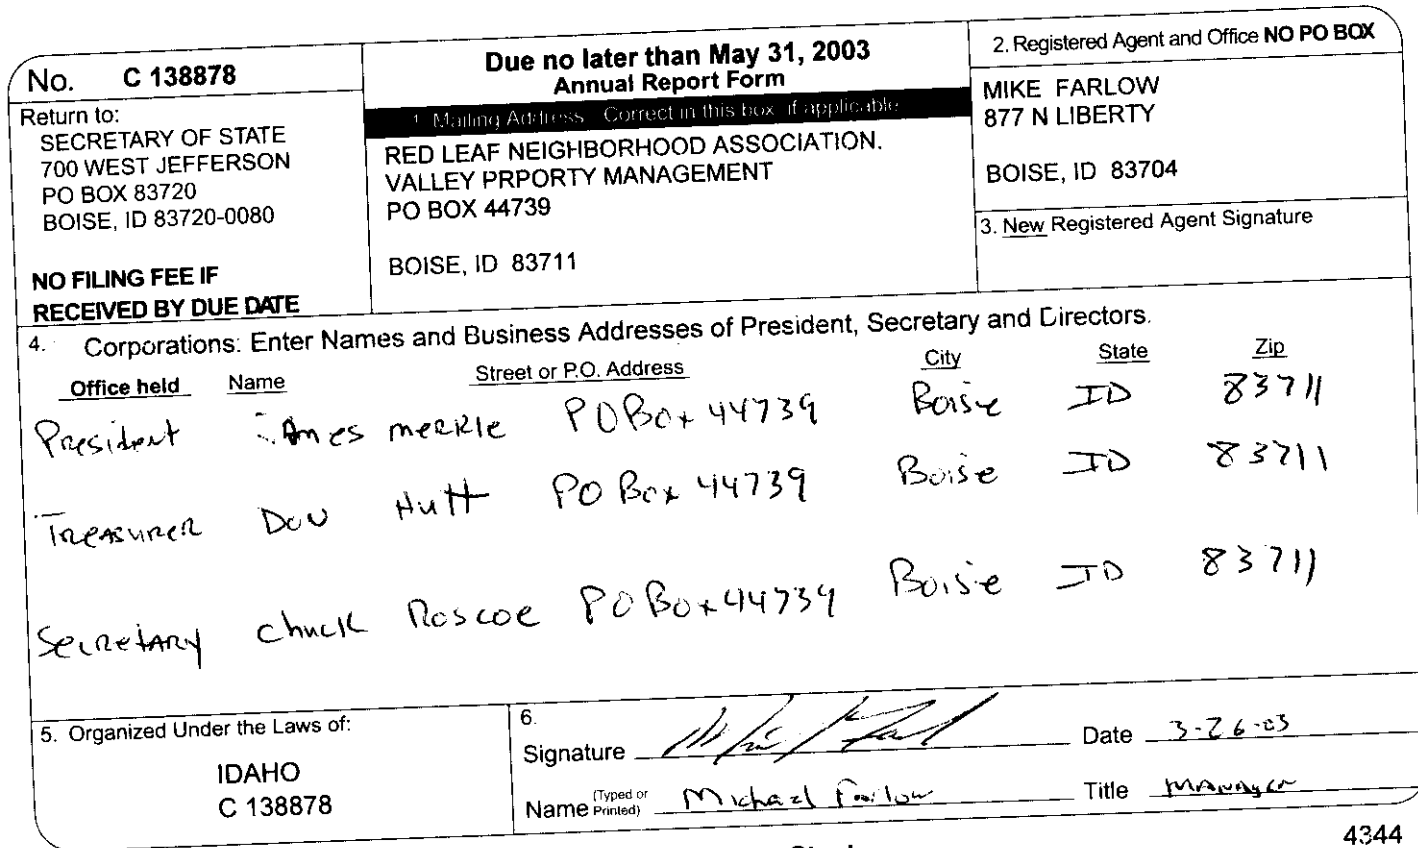 No. C 138878
Return to:
SECRETARY OF STATE
700 WEST JEFFERSON
PO BOX 83720
BOISE, ID 83720-0080
NO FILING FEE IF
RECEIVED BY DUE DATE
Due no later than May 31, 2003
Annual Report Form
1. Mailing Address. Correct in this box if applicable
RED LEAF NEIGHBORHOOD ASSOCIATION.
VALLEY PRPORTY MANAGEMENT
PO BOX 44739
BOISE, ID 83711
2. Registered Agent and Office NO PO BOX
MIKE FARLOW
877 N LIBERTY
BOISE, ID 83704
3. New Registered Agent Signature
4. Corporations: Enter Names and Business Addresses of President, Secretary and Directors.
Office held Name Street or P.O. Address City State Zip
President James merkle PO Box 44739 Boise ID 83711
Treasurer Don Hutt PO Box 44739 Boise ID 83711
Secretary Chuck Roscoe PO Box 44739 Boise ID 83711
5. Organized Under the Laws of:
IDAHO
C 138878
6.
Signature Date 3-26-03
Name (Typed or Printed) Michael Farlow Title Manager
4344